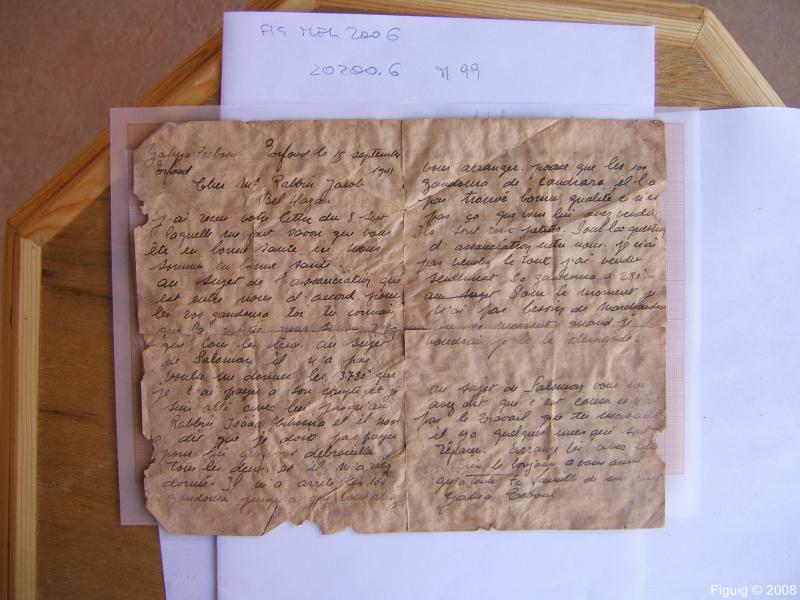 FIG MEL 2006
20200.6 M 99
Erfoud le 15 septembre
Erfoud 1941
Cher Mr Rabbin Jacob
Bel Hazan
j'ai recu votre lettre du 8 Sept
laquelle me fait savoir que vous
ête en bonne santé ici nous
sommes en bonne santé.
au sujet de l'assanciation qui
est entre nous d'accord pour
les 20 gandoura toi tu connais
que
que tous les deux. au sujet
de Salomon il n'a pas
voulu me donner les 3780 que
je t'ai payer a son compte et je
suis allé avec lui jusqu'au
Rabbin Isaac et il nous
a dit que je dois pas payer
pour lui debrouiller
tous les deux. et il m'a rien
donner. Il m'a arreté les 108
gandoura jusqu'a que vous
vous arranger. parce que les 108
gandoura de il l'a
pas trouvé bonne qualité ce n'est
pas ça que vous lui avez vendu
Ils sont tout petites. Pour la question
d'assanciation entre nous. je n'ai
pas vendu le tout j'ai vendu
seulement 50 gandoura a 230.
au sujet Pour le moment je
n'ai pas besoin de marchandise
en ce moment quand je
voudrai je te le demande.
au sujet de Salomon vous
avez dit que c'est comme
pas le travail que tu
il y a quelques unes qui sont
réparer. arrange toi avec lui
bien le bonjour a vous ainsi
qu'a toute la famille de
Yahia Teboul
Figuig © 2008